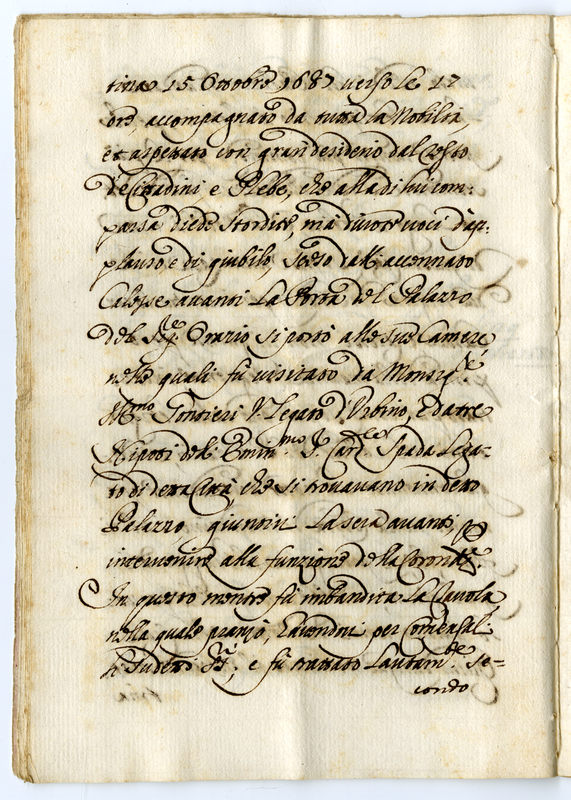 tina 15 Ottobre 1687 verso le 17
ore, accompagnato da tutta la Nobiltà,
et aspettato con gran desiderio dal resto
de Cittadini e Plebe, che alla di lui com:
parsa diede stordite, mà divote voci d'ap:
plauso e di giubilo, sceso dall'accennato
Calesse avanti La Porta del Palazzo
del Sig.re Orazio si portò alle sue Camere
nelle quali fù visitato da Monsig.re
Ill.mo Gontieri V. Legato d'Urbino, e da tre
Nipoti dell'Emin.mo S. Card.le Spada Lega-
to di detta Città, che si trovavano in detto
Palazzo giuntivi La sera avanti, p
intervenire alla funzione della Coronaz.e
In questo mentre fù imbandita La Tavola,
nella quale pranzò, havendovi per Commensali
li sudetti SS.ri, e fù trattato Lautam.te se-
condo